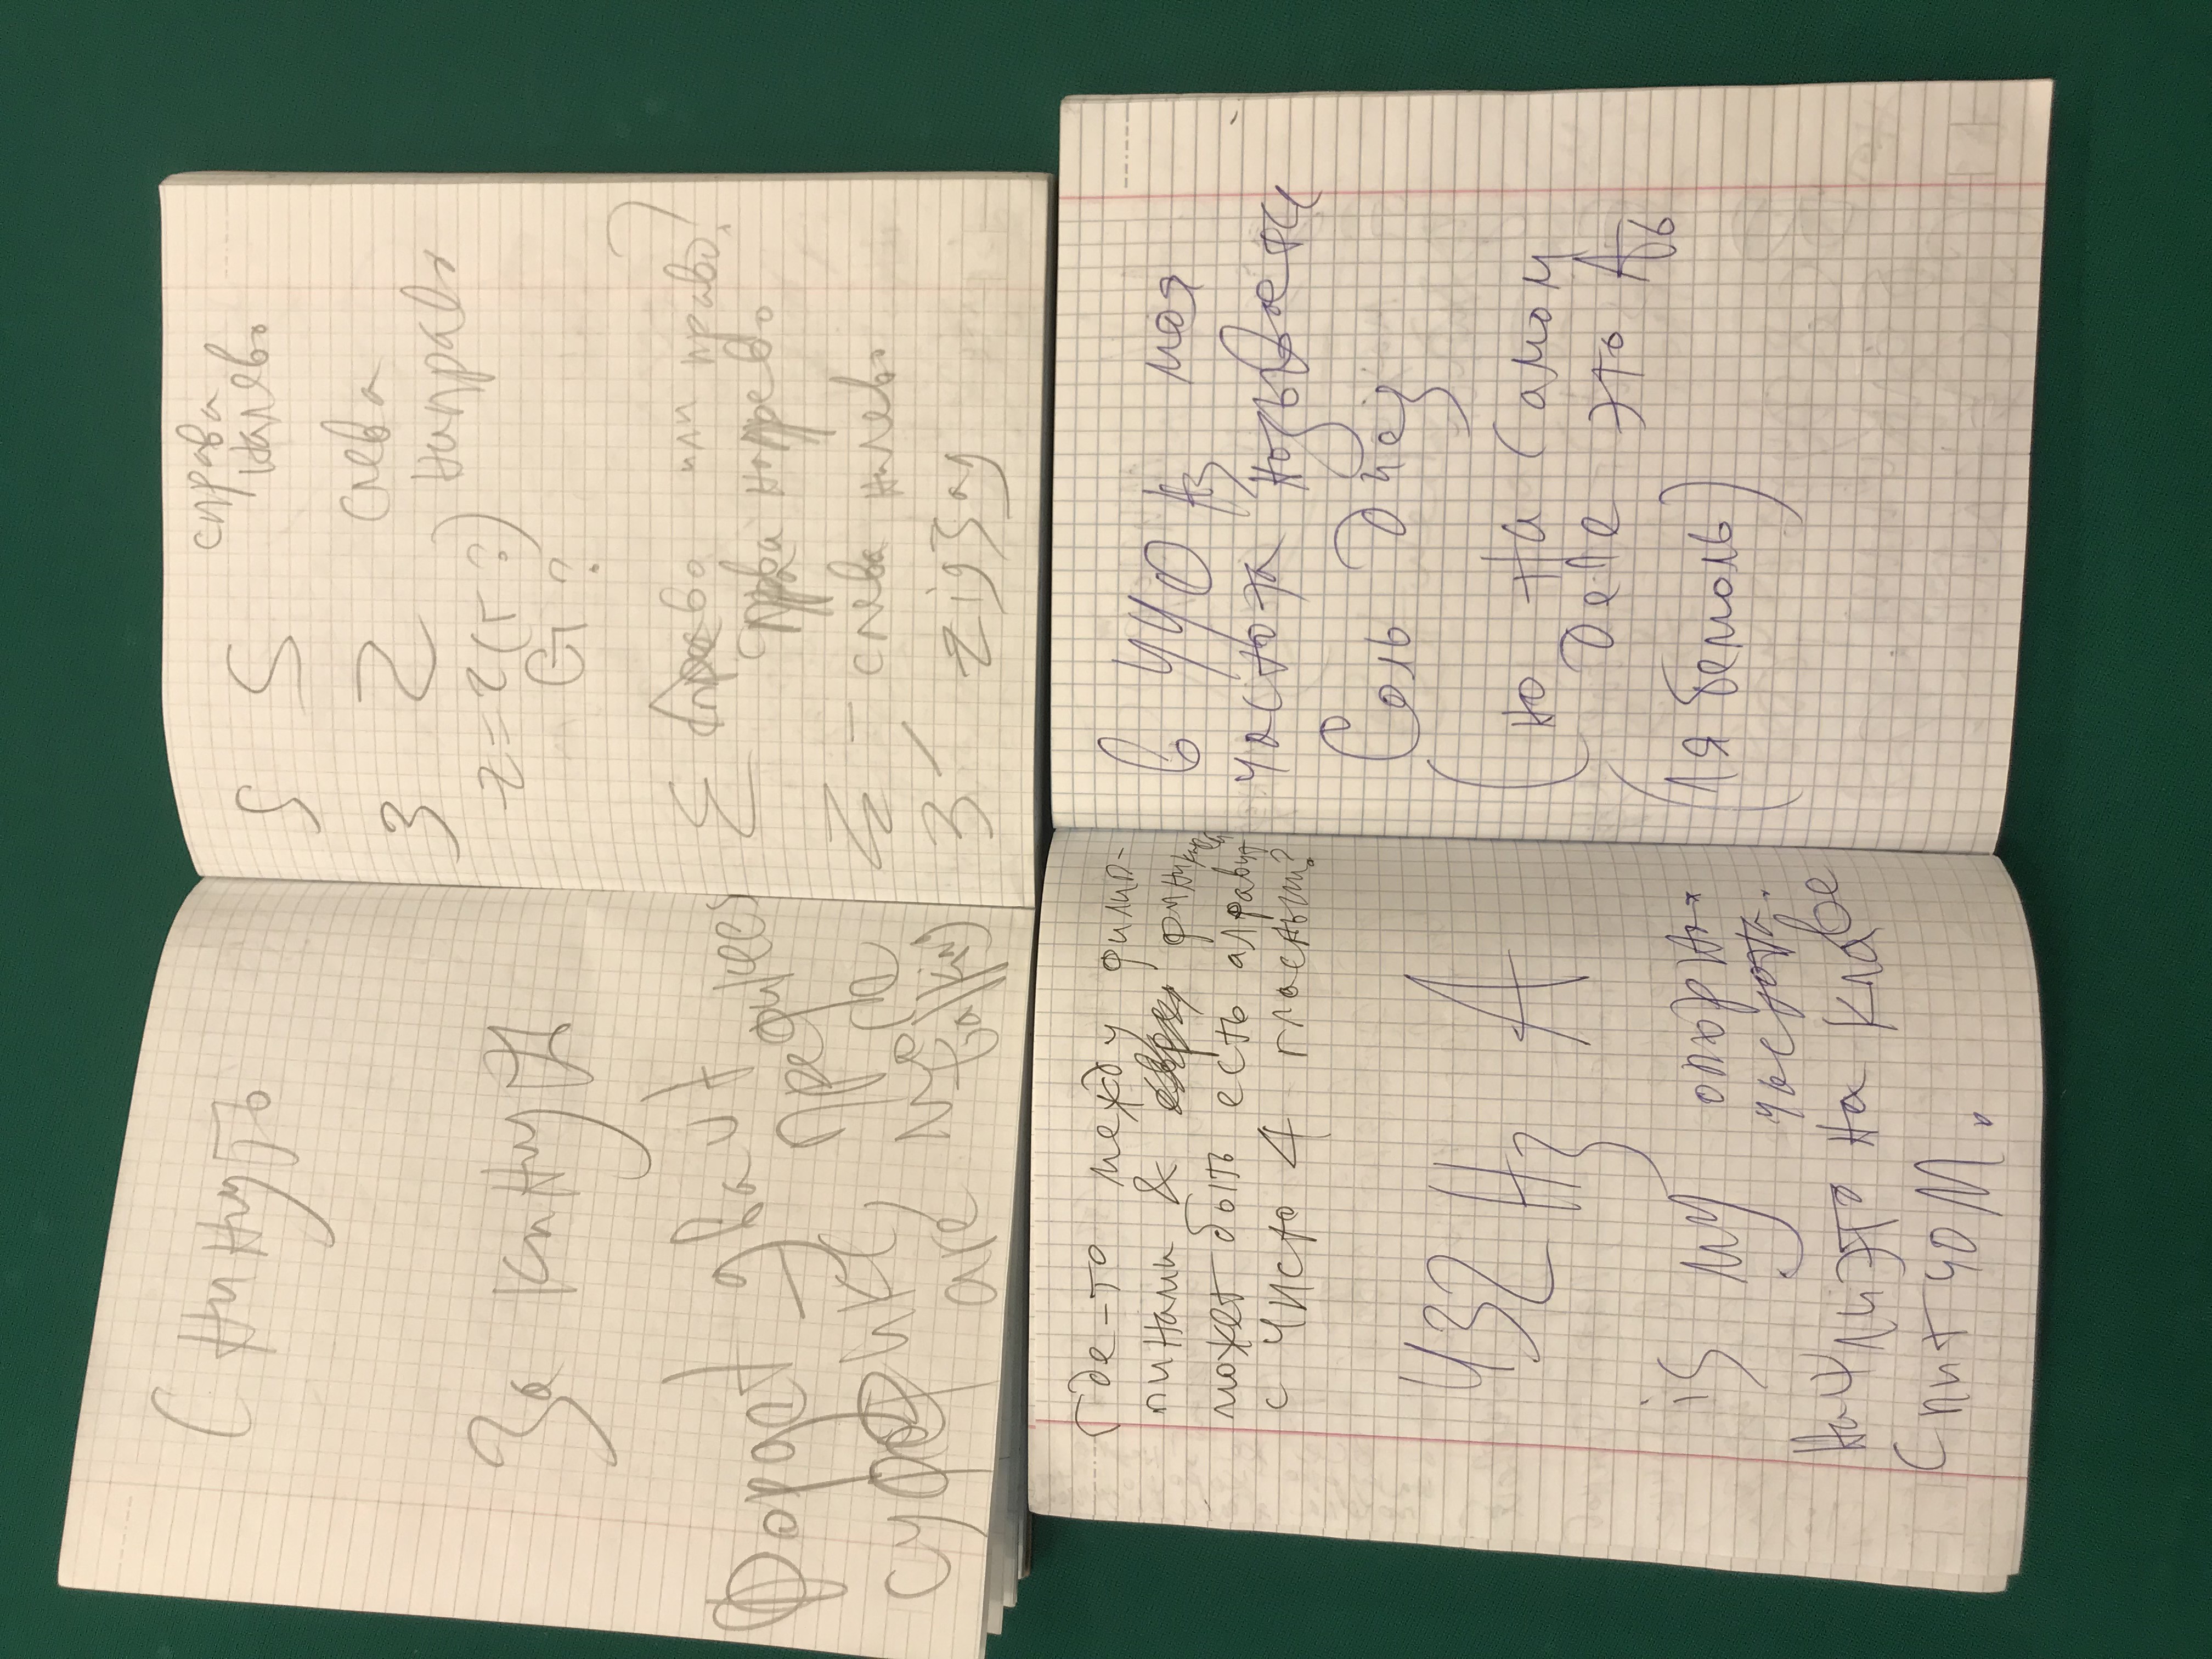 Снинуть
За кинуть
Фордет два ut
суффикс, префиксес
are more
talking
справа
налево
S S
слева
направо
З Z
z = 2 (г ?)
G ?
Σ или право?
права направо
– слева налево
З zigзag
Где-то между филип-
пинами &
может быть есть алфавит
с чисто 4 гласными?
432 Hз A
is my опорная
частота.
это на клаве
в 440 Hз моя
частота называется
Соль Диез
(но на самом
деле это Ab
(ля бемоль)